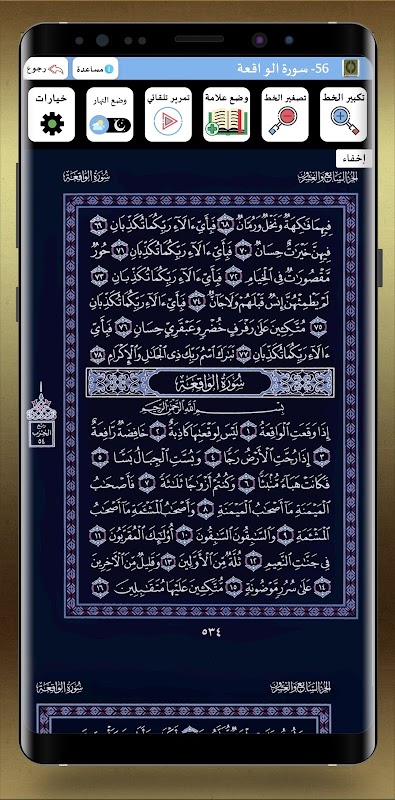 56- سورة الواقعة
مساعدة
رجوع
تكبير الخط
تصغير الخط
وضع علامة
تمرير تلقائي
وضع النهار
خيارات
إخفاء
الجزء السابع والعشرون
سُورَةُ الوَاقِعَةِ
فِيهِمَا فَٰكِهَةٌ وَنَخْلٌ وَرُمَّانٌ ٦٨ فَبِأَيِّ ءَالَآءِ رَبِّكُمَا تُكَذِّبَانِ ٦٩
فِيهِنَّ خَيْرَٰتٌ حِسَانٌ ٧٠ فَبِأَيِّ ءَالَآءِ رَبِّكُمَا تُكَذِّبَانِ ٧١ حُورٌ
مَّقْصُورَٰتٌ فِي ٱلْخِيَامِ ٧٢ فَبِأَيِّ ءَالَآءِ رَبِّكُمَا تُكَذِّبَانِ ٧٣
لَمْ يَطْمِثْهُنَّ إِنسٌ قَبْلَهُمْ وَلَا جَآنٌّ ٧٤ فَبِأَيِّ ءَالَآءِ رَبِّكُمَا تُكَذِّبَانِ
٧٥ مُتَّكِـِٔينَ عَلَىٰ رَفْرَفٍ خُضْرٍ وَعَبْقَرِيٍّ حِسَانٍ ٧٦ فَبِأَيِّ
ءَالَآءِ رَبِّكُمَا تُكَذِّبَانِ ٧٧ تَبَٰرَكَ ٱسْمُ رَبِّكَ ذِي ٱلْجَلَٰلِ وَٱلْإِكْرَامِ ٧٨
سُورَةُ الوَاقِعَةِ
بِسْمِ ٱللَّهِ ٱلرَّحْمَٰنِ ٱلرَّحِيمِ
إِذَا وَقَعَتِ ٱلْوَاقِعَةُ ١ لَيْسَ لِوَقْعَتِهَا كَاذِبَةٌ ٢ خَافِضَةٌ رَّافِعَةٌ
٣ إِذَا رُجَّتِ ٱلْأَرْضُ رَجًّا ٤ وَبُسَّتِ ٱلْجِبَالُ بَسًّا ٥
فَكَانَتْ هَبَآءً مُّنۢبَثًّا ٦ وَكُنتُمْ أَزْوَٰجًا ثَلَٰثَةً ٧ فَأَصْحَٰبُ
ٱلْمَيْمَنَةِ مَآ أَصْحَٰبُ ٱلْمَيْمَنَةِ ٨ وَأَصْحَٰبُ ٱلْمَشْـَٔمَةِ مَآ أَصْحَٰبُ
ٱلْمَشْـَٔمَةِ ٩ وَٱلسَّٰبِقُونَ ٱلسَّٰبِقُونَ ١٠ أُو۟لَٰٓئِكَ ٱلْمُقَرَّبُونَ ١١
فِي جَنَّٰتِ ٱلنَّعِيمِ ١٢ ثُلَّةٌ مِّنَ ٱلْأَوَّلِينَ ١٣ وَقَلِيلٌ مِّنَ ٱلْءَاخِرِينَ
١٤ عَلَىٰ سُرُرٍ مَّوْضُونَةٍ ١٥ مُّتَّكِـِٔينَ عَلَيْهَا مُتَقَٰبِلِينَ ١٦
ربع
الحزب
٥٤
٥٣٤
الجزء السابع والعشرون
سُورَةُ الوَاقِعَةِ